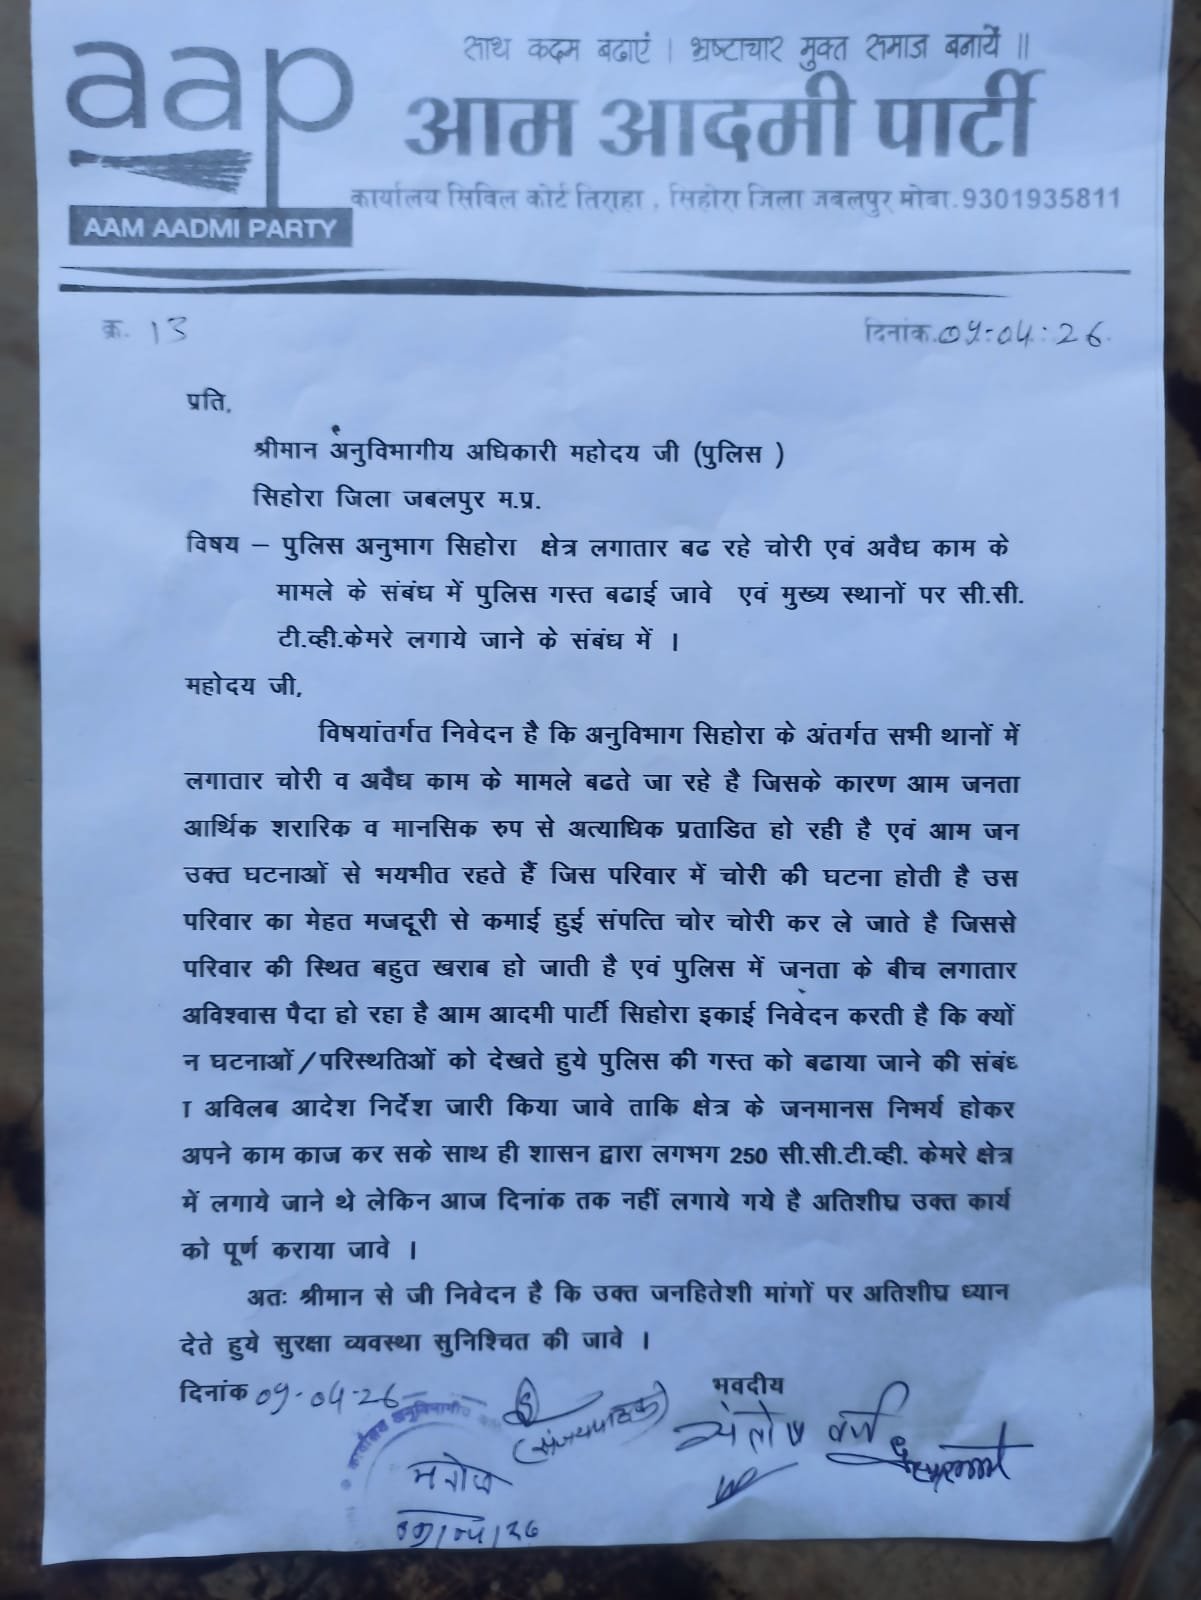 साथ कदम बढाएं । भ्रष्टाचार मुक्त समाज बनायें ॥
aap
आम आदमी पार्टी
कार्यालय सिविल कोर्ट तिराहा , सिहोरा जिला जबलपुर मोबा.9301935811
AAM AADMI PARTY
क्र. 13
दिनांक.09-04-26
प्रति,
श्रीमान अनुविभागीय अधिकारी महोदय जी (पुलिस )
सिहोरा जिला जबलपुर म.प्र.
विषय – पुलिस अनुभाग सिहोरा क्षेत्र लगातार बढ रहे चोरी एवं अवैध काम के
मामले के संबंध में पुलिस गस्त बढाई जावे एवं मुख्य स्थानों पर सी.सी.
टी.व्ही.केमरे लगाये जाने के संबंध में ।
महोदय जी,
विषयांतर्गत निवेदन है कि अनुविभाग सिहोरा के अंतर्गत सभी थानों में
लगातार चोरी व अवैध काम के मामले बढते जा रहे है जिसके कारण आम जनता
आर्थिक शरारिक व मानसिक रुप से अत्याधिक प्रताडित हो रही है एवं आम जन
उक्त घटनाओं से भयभीत रहते हैं जिस परिवार में चोरी की घटना होती है उस
परिवार का मेहत मजदूरी से कमाई हुई संपत्ति चोर चोरी कर ले जाते है जिससे
परिवार की स्थित बहुत खराब हो जाती है एवं पुलिस में जनता के बीच लगातार
अविश्वास पैदा हो रहा है आम आदमी पार्टी सिहोरा इकाई निवेदन करती है कि क्यों
न घटनाओं/परिस्थतिओं को देखते हुये पुलिस की गस्त को बढाया जाने की संबंध
ा अविलब आदेश निर्देश जारी किया जावे ताकि क्षेत्र के जनमानस निभर्य होकर
अपने काम काज कर सके साथ ही शासन द्वारा लगभग 250 सी.सी.टी.व्ही. केमरे क्षेत्र
में लगाये जाने थे लेकिन आज दिनांक तक नहीं लगाये गये है अतिशीघ्र उक्त कार्य
को पूर्ण कराया जावे ।
अतः श्रीमान से जी निवेदन है कि उक्त जनहितेशी मांगों पर अतिशीघ्र ध्यान
देते हुये सुरक्षा व्यवस्था सुनिश्चित की जावे ।
दिनांक 09-04-26
भवदीय
(संजय पाठक)
संतोष वर्मा
कार्यालय अनुविभागीय
मनोज
09/04/26